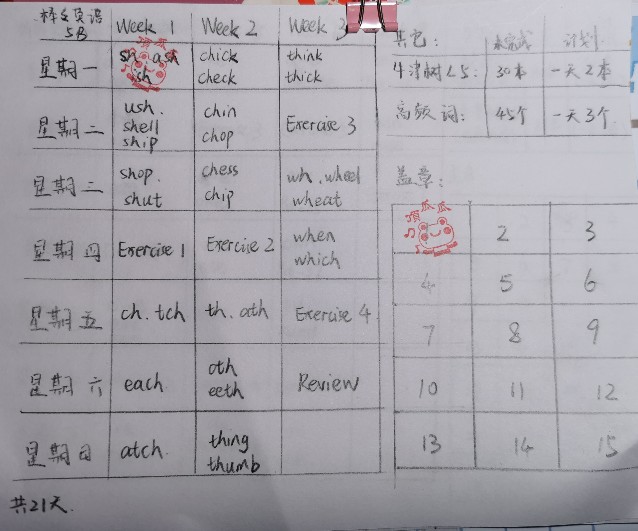 棒棒英语 Week 1 Week 2 Week 3
5B
星期一 sh. ash chick think
ish check thick
星期二 ush. chin Exercise 3
shell chop
ship
星期三 shop. chess wh. wheel
shut chip wheat
星期四 Exercise 1 Exercise 2 when
which
星期五 ch. tch th. ath Exercise 4
星期六 each. oth Review
eeth
星期日 atch. thing
thumb
共21天.
其它: 未完成 计划
牛津树L5: 30本 一天2本
高频词: 45个 一天3个.
盖章:
顶瓜瓜
2 3
4 5 6
7 8 9
10 11 12
13 14 15